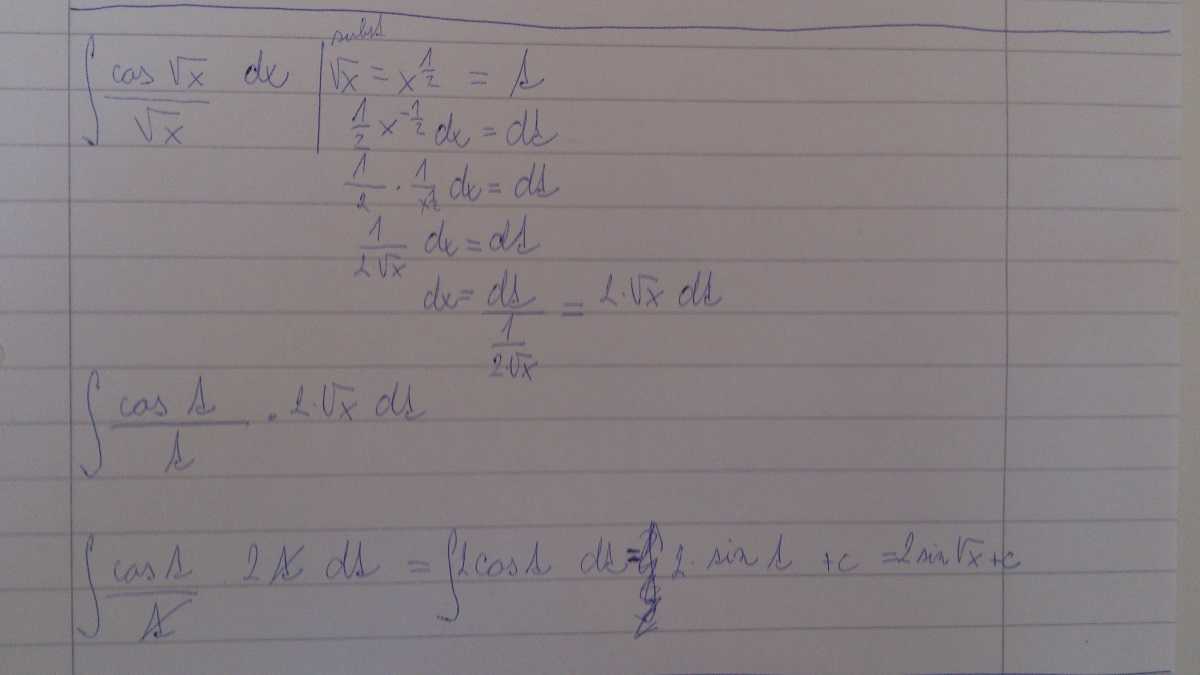 subst
∫ cos √x / √x dx | √x = x^(1/2) = t
1/2 x^(-1/2) dx = dt
1/2 · 1/x^(1/2) dx = dt
1/(2√x) dx = dt
dx = dt / (1/(2·√x)) = 2·√x dt
∫ cos t / t · 2·√x dt
∫ cos t / t 2t dt = ∫ 2 cos t dt = 2 · sin t + c = 2 sin √x + c